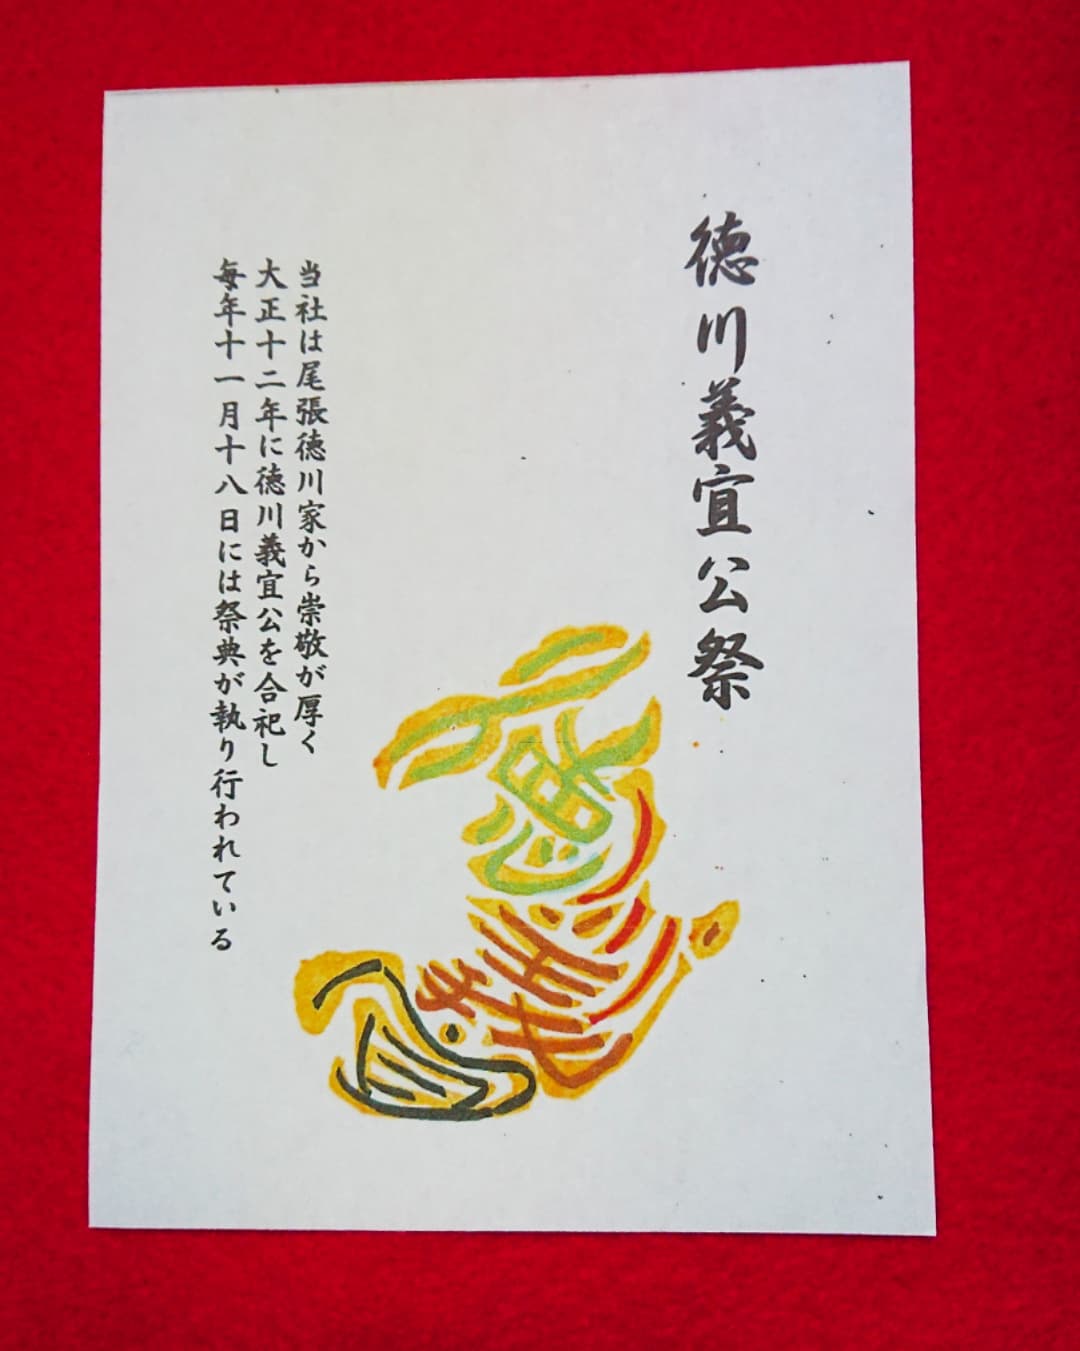 徳川義宜公祭
当社は尾張徳川家から崇敬が厚く
大正十二年に徳川義宜公を合祀し
毎年十一月十八日には祭典が執り行われている
徳川義宜